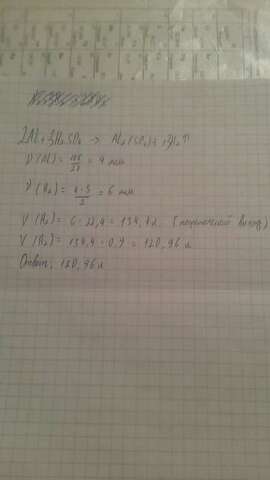 2Al + 3H₂SO₄ → Al₂(SO₄)₃ + 3H₂↑
ν(Al) = 108/27 = 4 моль
ν(H₂) = 4·3/2 = 6 моль
V(H₂) = 6·22,4 = 134,4 л. (теоретический выход)
V(H₂) = 134,4·0,9 = 120,96 л
Ответ: 120,96 л